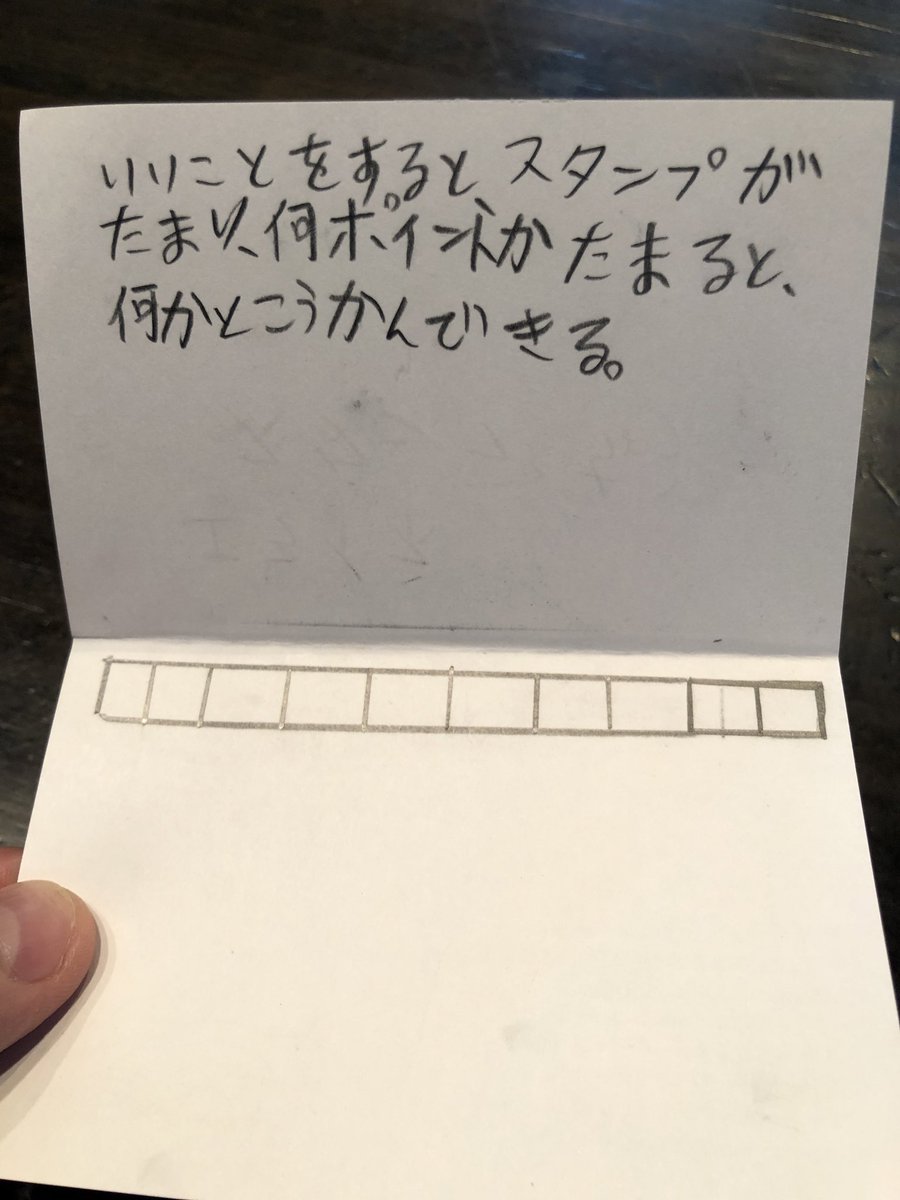 いいことをすると、スタンプが
たまり、何ポイントかたまると、
何かとこうかんできる。